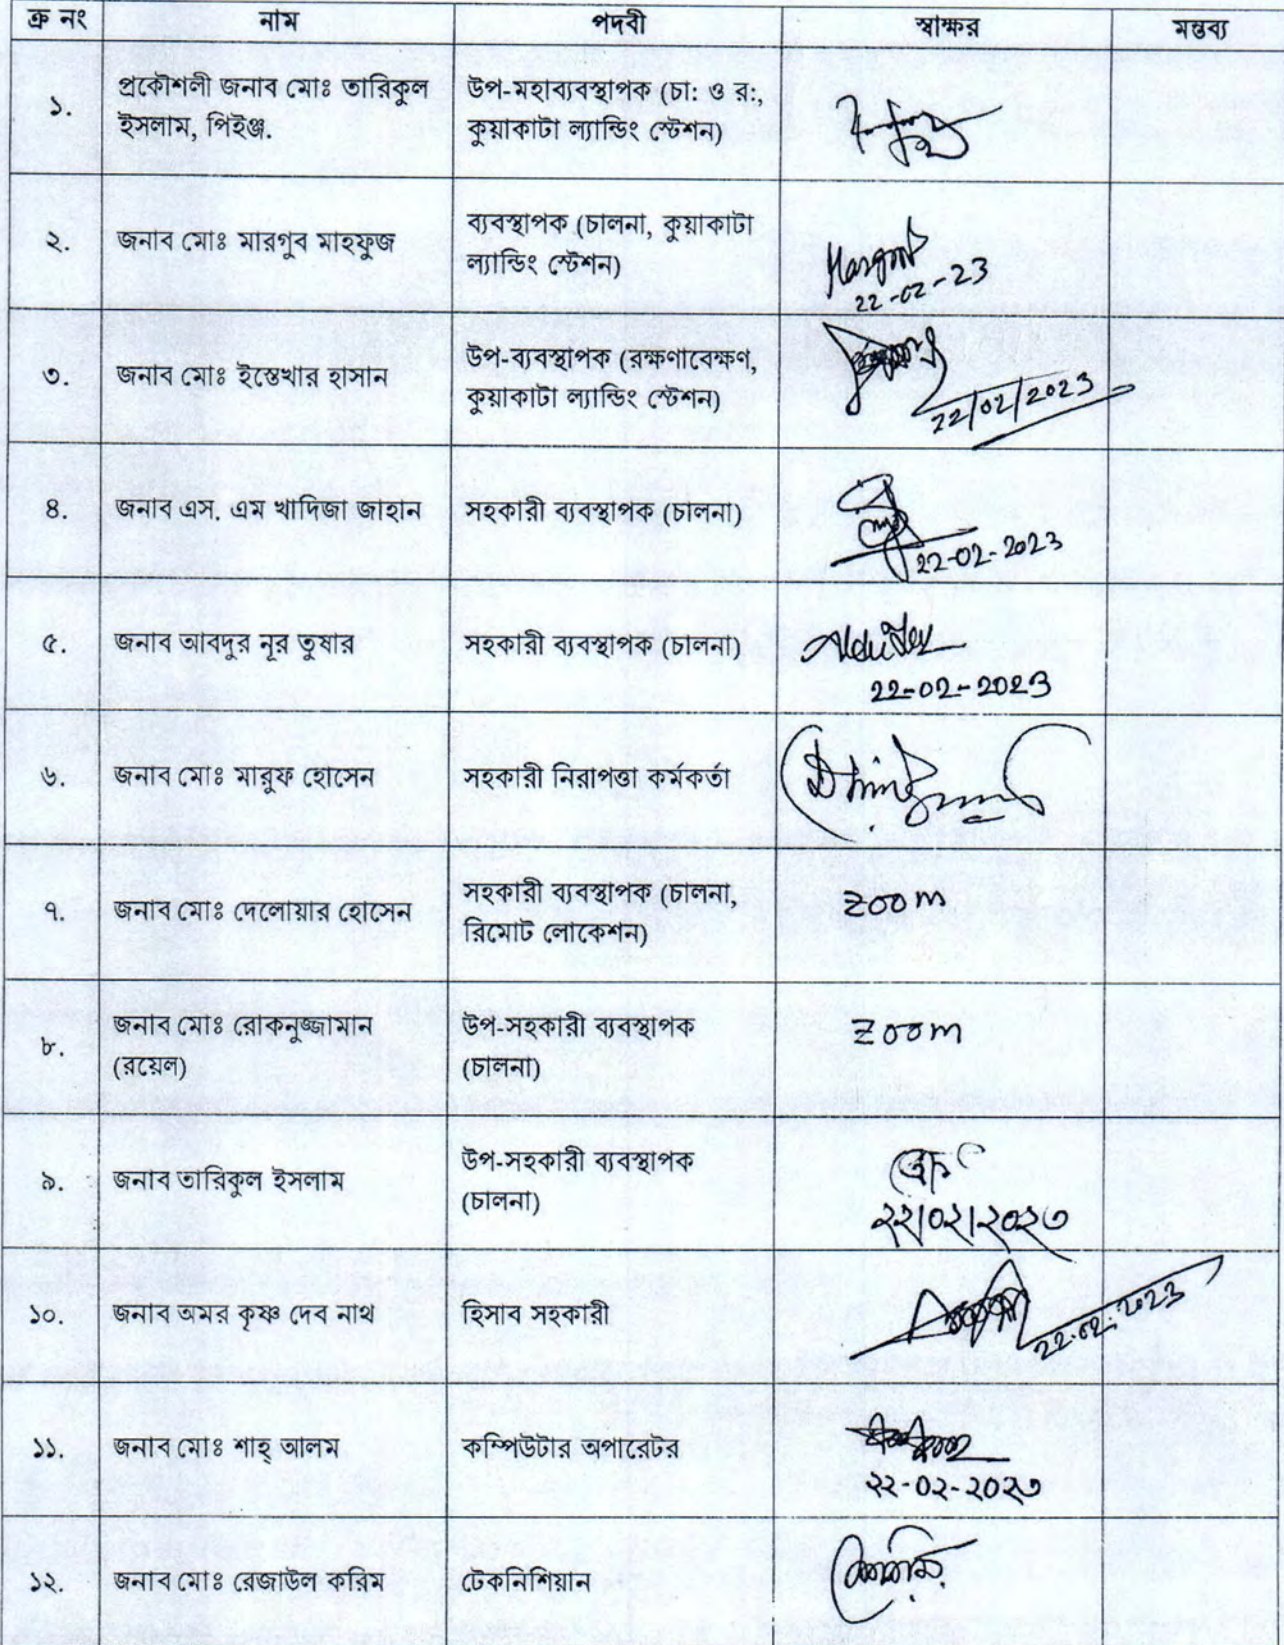 ক্র নং নাম পদবী স্বাক্ষর মন্তব্য
১. প্রকৌশলী জনাব মোঃ তারিকুল ইসলাম, পিইঞ্জ. উপ-মহাব্যবস্থাপক (চা: ও র:, কুয়াকাটা ল্যান্ডিং স্টেশন)
২. জনাব মোঃ মারগুব মাহফুজ ব্যবস্থাপক (চালনা, কুয়াকাটা ল্যান্ডিং স্টেশন) 22-02-23
৩. জনাব মোঃ ইস্তেখার হাসান উপ-ব্যবস্থাপক (রক্ষণাবেক্ষণ, কুয়াকাটা ল্যান্ডিং স্টেশন) 22/02/2023
৪. জনাব এস. এম খাদিজা জাহান সহকারী ব্যবস্থাপক (চালনা) 22-02-2023
৫. জনাব আবদুর নূর তুষার সহকারী ব্যবস্থাপক (চালনা) 22-02-2023
৬. জনাব মোঃ মারুফ হোসেন সহকারী নিরাপত্তা কর্মকর্তা
৭. জনাব মোঃ দেলোয়ার হোসেন সহকারী ব্যবস্থাপক (চালনা, রিমোট লোকেশন) zoom
৮. জনাব মোঃ রোকনুজ্জামান (রয়েল) উপ-সহকারী ব্যবস্থাপক (চালনা) zoom
৯. জনাব তারিকুল ইসলাম উপ-সহকারী ব্যবস্থাপক (চালনা) ২২/০২/২০২৩
১০. জনাব অমর কৃষ্ণ দেব নাথ হিসাব সহকারী 22.02.2023
১১. জনাব মোঃ শাহ্ আলম কম্পিউটার অপারেটর ২২-০২-২০২৩
১২. জনাব মোঃ রেজাউল করিম টেকনিশিয়ান